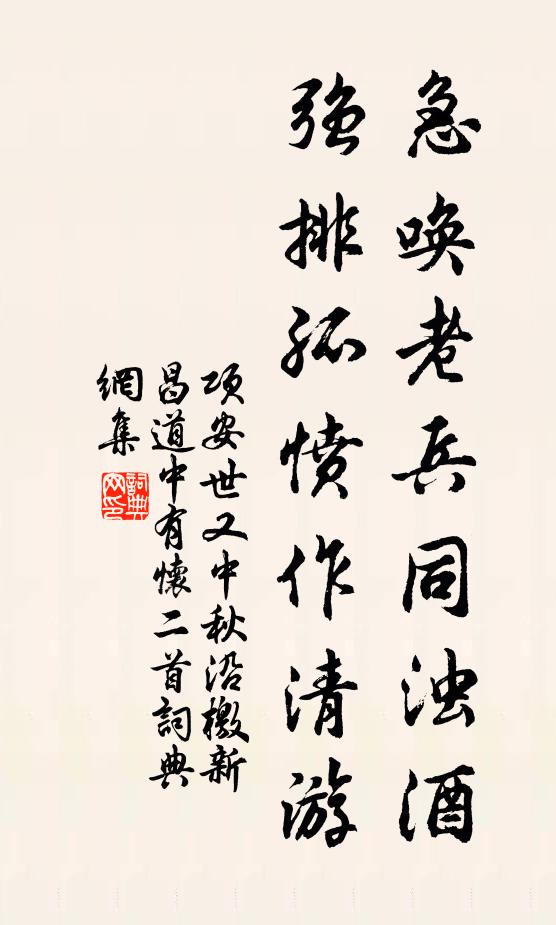 急唤老兵同浊酒
强排孤愤作清游
项安世又中秋沿檄新
昌道中有懷二首詞典
網集
詞典网印